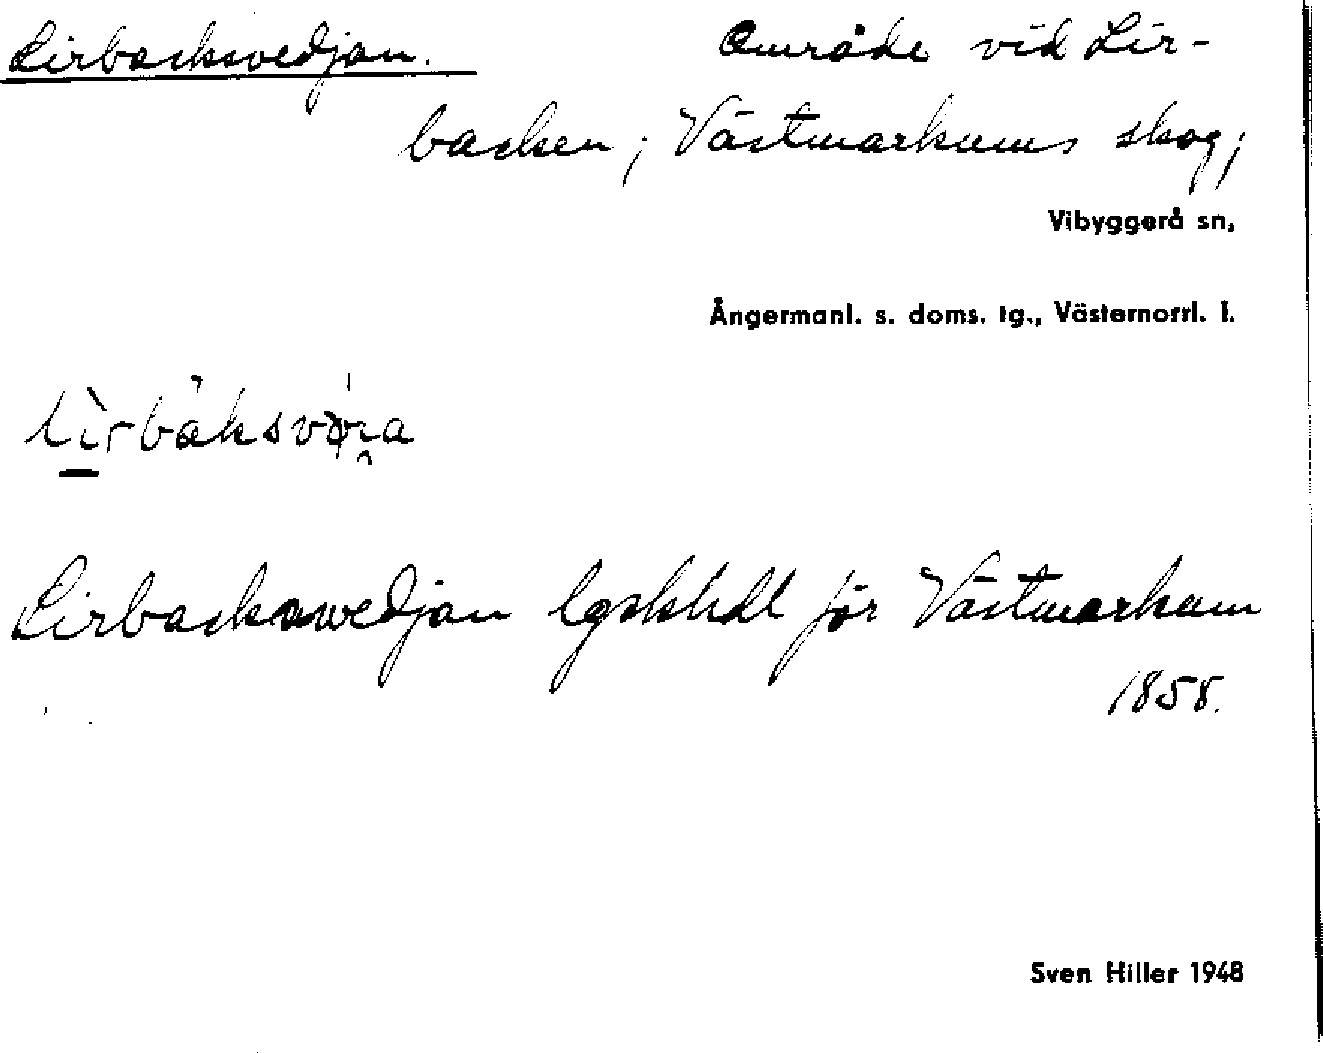 Lirbacksvedjan. Område vid Lir-
backen; Västmarkums skog;
Vibyggerå sn,
Ångermanl. s. doms. tg., Västernorrl. l.
Lirbackswedjan lgsktskt för Västmarkum
1858.
Sven Hiller 1948